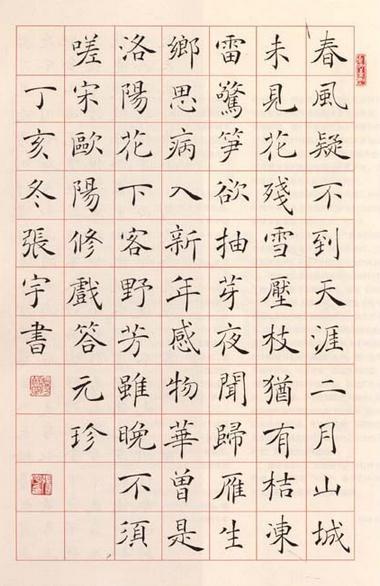 春風疑不到天涯二月山城
未見花殘雪壓枝猶有桔凍
雷驚笋欲抽芽夜聞歸雁生
鄉思病入新年感物華曾是
洛陽花下客野芳雖晚不須
嗟宋歐陽修戲答元珍
丁亥冬張宇書